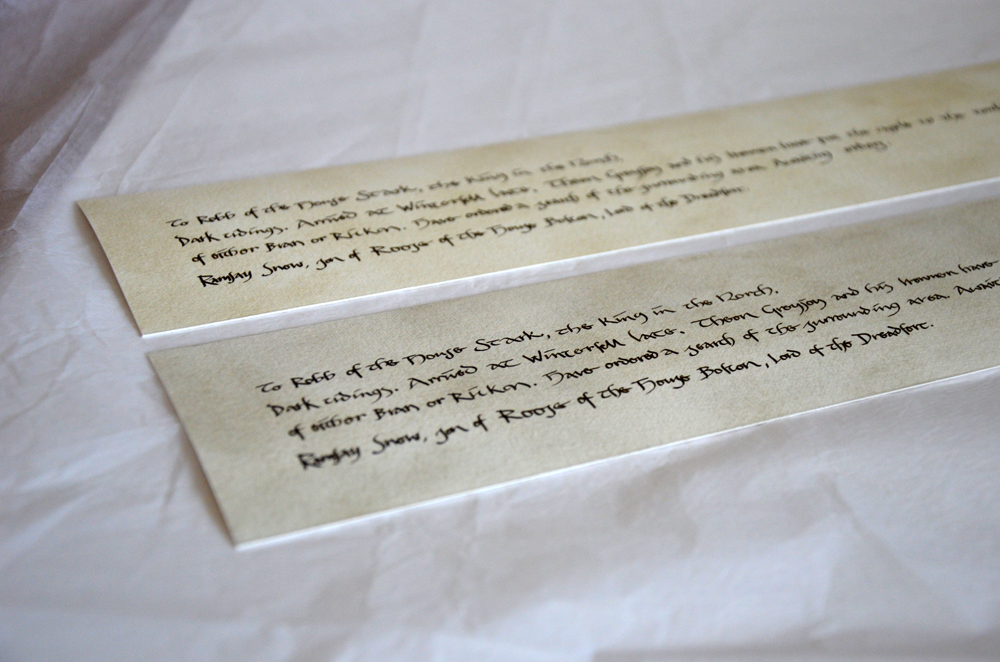 To Robb of the House Stark, the King in the North,
Dark tidings. Arrived at Winterfell late. Theon Greyjoy and his Ironmen have put the castle to the
of either Bran or Rickon. Have ordered a search of the surrounding area. Awaiting
Ramsay Snow, son of Roose of the House Bolton, Lord of the Dreadfort.
To Robb of the House Stark, the King in the North,
Dark tidings. Arrived at Winterfell late. Theon Greyjoy and his Ironmen have
of either Bran or Rickon. Have ordered a search of the surrounding area. Await
Ramsay Snow, son of Roose of the House Bolton, Lord of the Dreadfort.